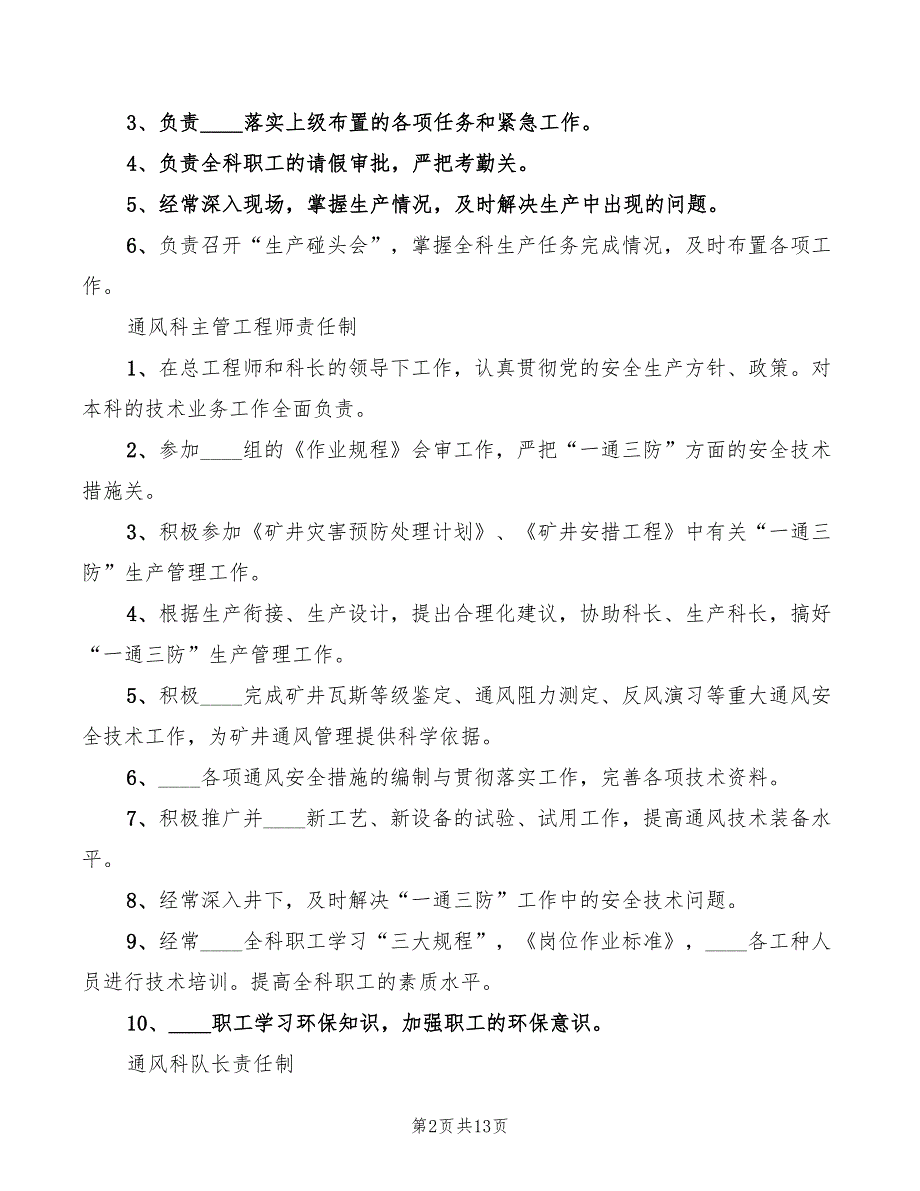 3、负责____落实上级布置的各项任务和紧急工作。
4、负责全科职工的请假审批，严把考勤关。
5、经常深入现场，掌握生产情况，及时解决生产中出现的问题。
6、负责召开“生产碰头会”，掌握全科生产任务完成情况，及时布置各项工
作。
通风科主管工程师责任制
1、在总工程师和科长的领导下工作，认真贯彻党的安全生产方针、政策。对
本科的技术业务工作全面负责。
2、参加____组的《作业规程》会审工作，严把“一通三防”方面的安全技术
措施关。
3、积极参加《矿井灾害预防处理计划》、《矿井安措工程》中有关“一通三
防”生产管理工作。
4、根据生产衔接、生产设计，提出合理化建议，协助科长、生产科长，搞好
“一通三防”生产管理工作。
5、积极____完成矿井瓦斯等级鉴定、通风阻力测定、反风演习等重大通风安
全技术工作，为矿井通风管理提供科学依据。
6、____各项通风安全措施的编制与贯彻落实工作，完善各项技术资料。
7、积极推广并____新工艺、新设备的试验、试用工作，提高通风技术装备水
平。
8、经常深入井下，及时解决“一通三防”工作中的安全技术问题。
9、经常____全科职工学习“三大规程”，《岗位作业标准》，____各工种人
员进行技术培训。提高全科职工的素质水平。
10、____职工学习环保知识，加强职工的环保意识。
通风科队长责任制
第2页共13页